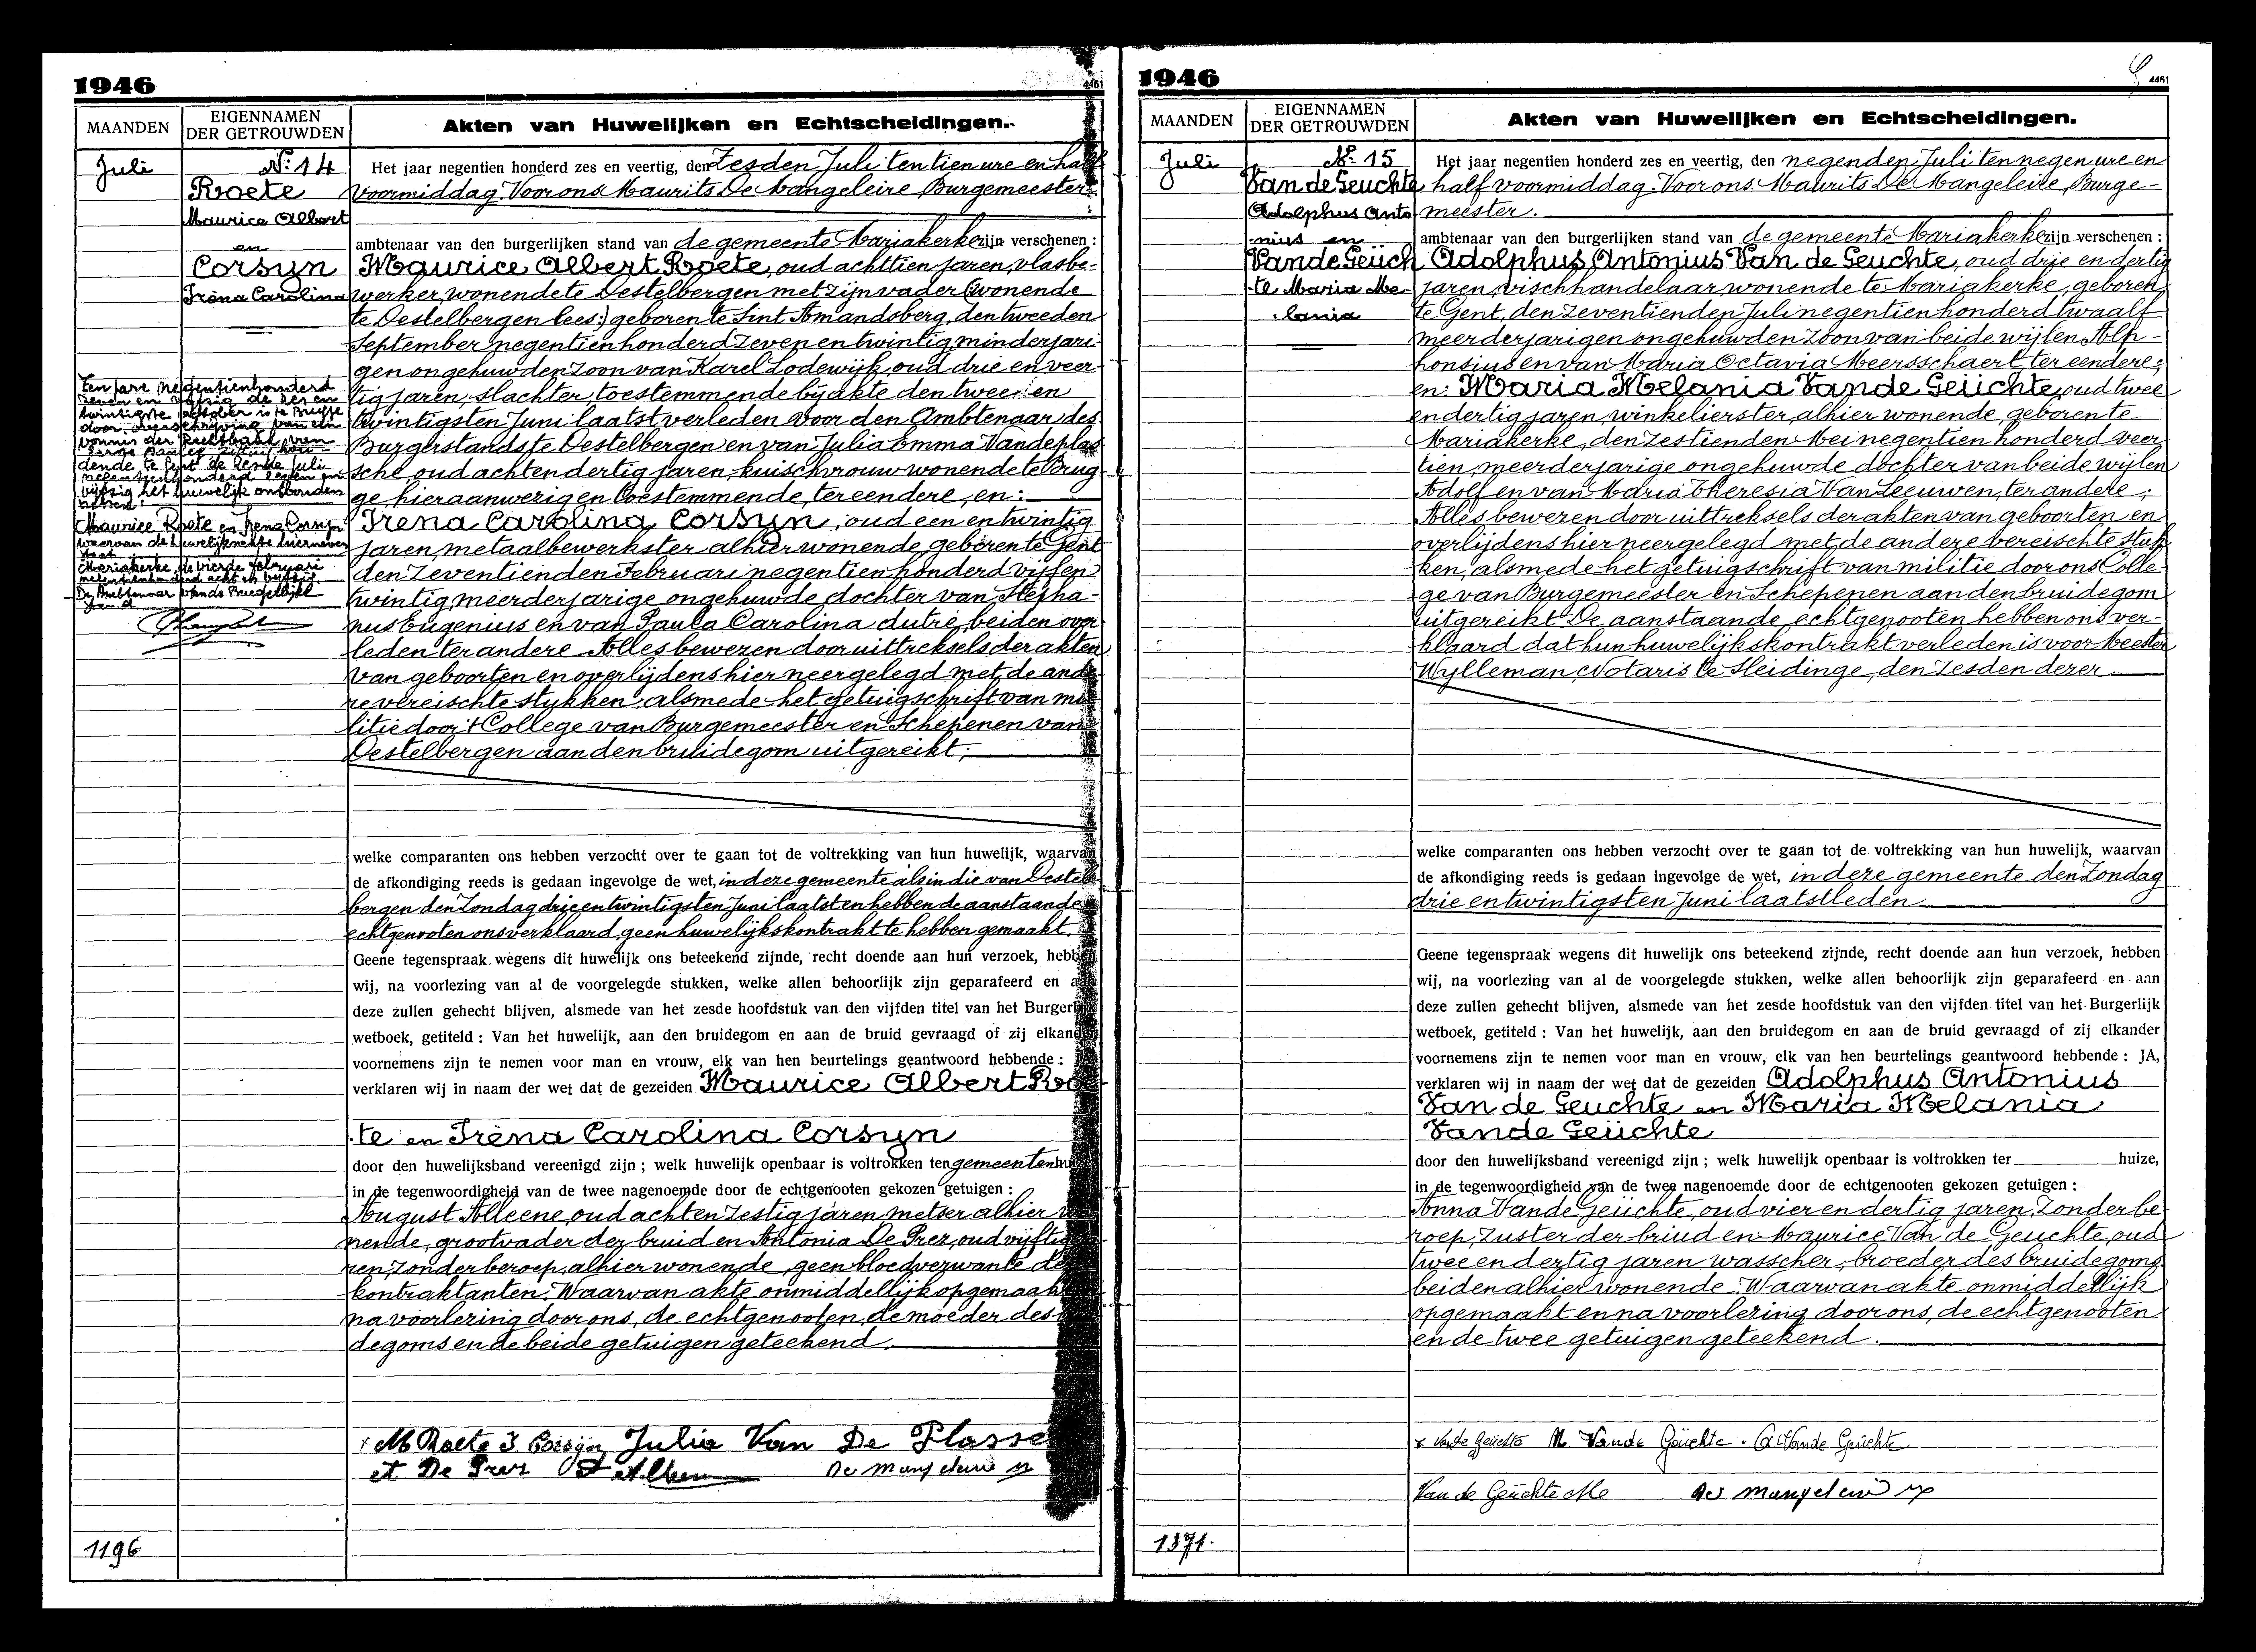 1946
4461
MAANDEN
EIGENNAMEN
DER GETROUWDEN
Akten van Huwelijken en Echtscheidingen.
Juli
No 14
Roete
Maurice Albert
en
Corsyn
Iréna Carolina
Ten jare negentienhonderd
zeven en vijftig de zes en
twintigste oktober is te Brugge
door overschrijving van een
vonnis der Rechtbank van
Eerste Aanleg zitting hou-
dende te Gent de tiende Juli
negentienhonderd zeven en
vijftig het huwelijk ontbonden
tussen:
Maurice Roete en Irena Corsyn
waarvan de huwelijksakte hierneven
staat
Mariakerke, de vierde februari
negentienhonderd acht en vijftig.
De Ambtenaar van de Burgerlijke
Stand
Het jaar negentien honderd zes en veertig, den Zesden Juli ten tien ure en half
voormiddag. Voor ons Maurits De Mangeleire, Burgemeester
ambtenaar van den burgerlijken stand van de gemeente Mariakerke zijn verschenen :
Maurice Albert Roete, oud achttien jaren, vlasbe-
werker, wonende te Destelbergen met zijn vader (wonende
te Destelbergen lees:) geboren te Sint Amandsberg, den tweeden
September negentien honderd zeven en twintig, minderjari-
gen ongehuwden zoon van Karel Lodewijk, oud drie en veer-
tig jaren, slachter, toestemmende bij akte den twee en
twintigsten Juni laatst verleden voor den Ambtenaar des
Burgerstands te Destelbergen en van Julia Emma Vandeplas-
sche, oud acht en dertig jaren, kuischvrouw wonende te Brug-
ge, hier aanwezig en toestemmende, ter eendere, en:
Irena Carolina Corsyn, oud een en twintig
jaren, metaalbewerkster alhier wonende, geboren te Gent
den zeventienden Februari negentien honderd vijf en
twintig, meerderjarige ongehuwde dochter van Stepha-
nus Eugenius en van Paula Carolina dutrie, beiden over-
leden ter andere. Alles bewezen door uittreksels der akten
van geboorten en overlijdens hier neergelegd met de ande-
re vereischte stukken, alsmede het getuigschrift van mi-
litie door 't College van Burgemeester en Schepenen van
Destelbergen aan den bruidegom uitgereikt;
welke comparanten ons hebben verzocht over te gaan tot de voltrekking van hun huwelijk, waarvan
de afkondiging reeds is gedaan ingevolge de wet, in deze gemeente als in die van Destel-
bergen den Zondag drie en twintigsten Juni laatst en hebben de aanstaande
echtgenooten ons verklaard, geen huwelijkskontrakt te hebben gemaakt.
Geene tegenspraak wegens dit huwelijk ons beteekend zijnde, recht doende aan hun verzoek, hebben
wij, na voorlezing van al de voorgelegde stukken, welke allen behoorlijk zijn geparafeerd en aan
deze zullen gehecht blijven, alsmede van het zesde hoofdstuk van den vijfden titel van het Burgerlijk
wetboek, getiteld : Van het huwelijk, aan den bruidegom en aan de bruid gevraagd of zij elkander
voornemens zijn te nemen voor man en vrouw, elk van hen beurtelings geantwoord hebbende : JA,
verklaren wij in naam der wet dat de gezeiden Maurice Albert Roe-
te en Iréna Carolina Corsyn
door den huwelijksband vereenigd zijn ; welk huwelijk openbaar is voltrokken ten gemeentenhuize,
in de tegenwoordigheid van de twee nagenoemde door de echtgenooten gekozen getuigen :
August Alleene, oud acht en zestig jaren, metser alhier wo-
nende, grootvader der bruid en Antonia De Prez, oud vijftig
ren, zonder beroep, alhier wonende, geen bloedverwante de
kontraktanten. Waarvan akte onmiddellijk opgemaakt
na voorlezing door ons, de echtgenooten, de moeder des
degoms en de beide getuigen geteekend.
x M Roete I. Corsijn Julia Van De Plasse
A De Prez A Alleene De Mangeleire
1196
1946
4461
MAANDEN
EIGENNAMEN
DER GETROUWDEN
Akten van Huwelijken en Echtscheidingen.
Juli
No 15
Van de Geuchte
Adolphus Anto
nius en
Vande Geüch
te Maria Me
lania
Het jaar negentien honderd zes en veertig, den negenden Juli ten negen ure en
half voormiddag. Voor ons Maurits De Mangeleire, Burge-
meester.
ambtenaar van den burgerlijken stand van de gemeente Mariakerke zijn verschenen :
Adolphus Antonius Van de Geuchte, oud drie en dertig
jaren, vischhandelaar, wonende te Mariakerke, geboren
te Gent, den zeventienden Juli negentien honderd twaalf
meerderjarigen ongehuwden zoon van beide wijlen Alp-
honsius en van Maria Octavia Meersschaert, ter eendere;
en: Maria Melania Vande Geüchte, oud twee
en dertig jaren, winkelierster, alhier wonende, geboren te
Mariakerke, den zestienden Mei negentien honderd veer-
tien, meerderjarige ongehuwde dochter van beide wijlen
Adolf en van Maria Theresia Van Leeuwen, ter andere;
Alles bewezen door uittreksels der akten van geboorten en
overlijdens hier neergelegd met de andere vereischte stuk
ken, alsmede het getuigschrift van militie door ons Colle-
ge van Burgemeester en Schepenen aan den bruidegom
uitgereikt. De aanstaande echtgenooten hebben ons ver-
klaard dat hun huwelijkskontrakt verleden is voor Meester
Wylleman Notaris te Sleidinge, den zesden dezer
welke comparanten ons hebben verzocht over te gaan tot de voltrekking van hun huwelijk, waarvan
de afkondiging reeds is gedaan ingevolge de wet, in deze gemeente den Zondag
drie en twintigsten Juni laatstleden
Geene tegenspraak wegens dit huwelijk ons beteekend zijnde, recht doende aan hun verzoek, hebben
wij, na voorlezing van al de voorgelegde stukken, welke allen behoorlijk zijn geparafeerd en aan
deze zullen gehecht blijven, alsmede van het zesde hoofdstuk van den vijfden titel van het Burgerlijk
wetboek, getiteld : Van het huwelijk, aan den bruidegom en aan de bruid gevraagd of zij elkander
voornemens zijn te nemen voor man en vrouw, elk van hen beurtelings geantwoord hebbende : JA,
verklaren wij in naam der wet dat de gezeiden Adolphus Antonius
Van de Geuchte en Maria Melania
Vande Geüchte
door den huwelijksband vereenigd zijn ; welk huwelijk openbaar is voltrokken ter huize,
in de tegenwoordigheid van de twee nagenoemde door de echtgenooten gekozen getuigen :
Anna Vande Geüchte, oud vier en dertig jaren, zonder be
roep, zuster der briud en Maurice Van de Geuchte, oud
twee en dertig jaren, wasscher, broeder des bruidegoms
beiden alhier wonende. Waarvan akte onmiddellijk
opgemaakt en na voorlezing door ons, de echtgenooten
en de twee getuigen geteekend.
x Vande Geuchte M. Vande Geüchte. A Vande Geüchte
Van de Geüchte Me De Mangeleire
1371.